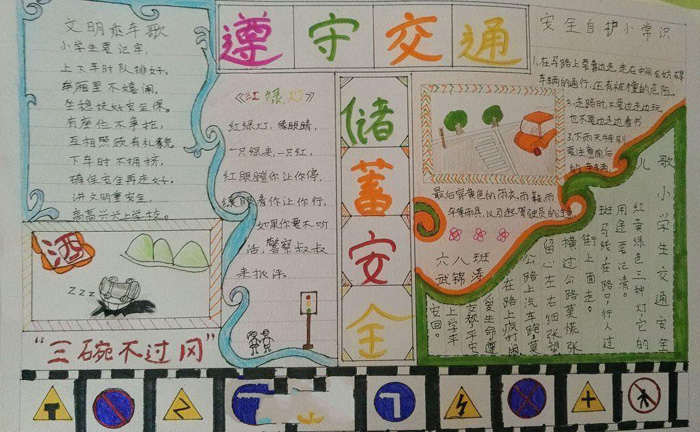 遵守交通
储蓄安全
文明乘车歌
小学生要记牢,
上下车时队排好。
车厢里不嬉闹,
坐稳扶好安全保。
有座位不争抢,
互相照顾有礼貌。
下车时不拥挤,
确保安全再走好。
讲文明重安全,
高高兴兴上学校。
酒
ZZZ
“三碗不过冈”
《红绿灯》
红绿灯,眨眼睛,
一只绿来,一只红,
红眼瞪你让你停,
绿眼看你让你行,
如果你要不听
话,警察叔叔
来批评。
安全自护小常识
1.在马路上要靠边走,走在中间会妨碍
车辆的通行,还有被撞的危险。
2.走路时,不要边走边玩
也不要边走边看书
3.下雨天特别
要注意前后
的车辆
最后穿黄色的雨衣,雨鞋,雨
六八班
武锦涛
儿歌小学生交通安全
红黄绿色三种灯它的
用途要记清。
斑马线在路口行人过
街上面走。
横过公路莫慌张
留心左右细张望
公路上汽车跑莫
在路上疯打闹
爱生命遵
交规平安
上学平
安回。